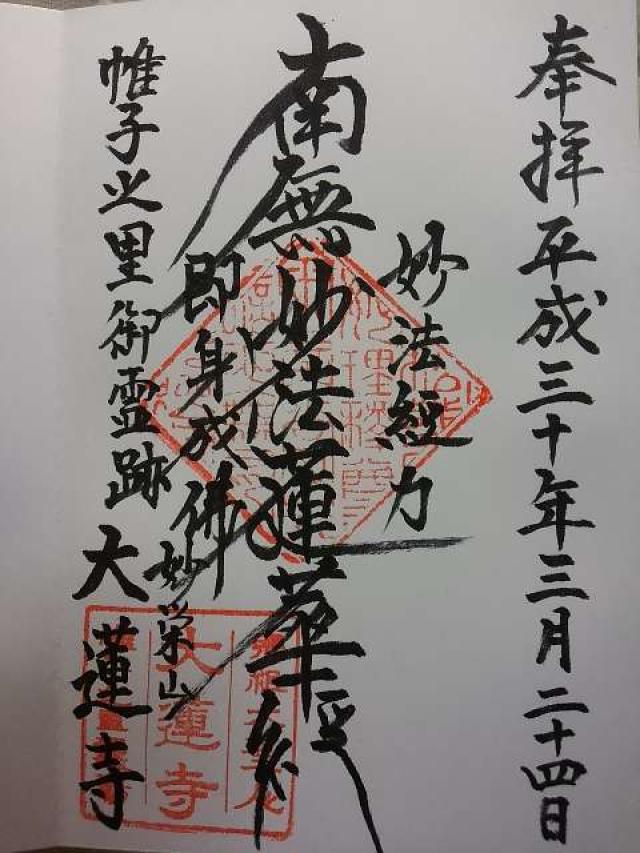 奉拝平成三十年三月二十四日
妙法經力
南無妙法蓮華経
即身成佛
妙栄山
帷子之里御霊跡
大蓮寺
大蓮寺